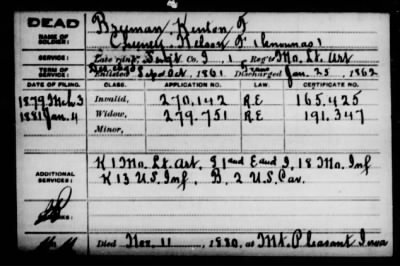 DEAD
NAME OF SOLDIER:
Bryman Kenton F
Cheney, Nelson F. (Cannumas)
SERVICE:
Late rank, Sergt Co. I, 1 Reg't Mo. Lt. Art
TERM OF SERVICE:
Enlisted Sept Oct, 1861 Discharged Jan. 25, 1862
DATE OF FILING. CLASS. APPLICATION NO. CERTIFICATE NO.
1879 Mch 3 Invalid, 270,142 R.E 165.425
1881 Jan. 4 Widow, 279.751 R.E 191.347
Minor,
ADDITIONAL SERVICES:
K 1 Mo. Lt. Art. & I and E and I, 18 Mo. Inf
K 13 U.S. Inf, B. 2 U.S. Cav.
Died Nov. 11, 1880, at Mt. Pleasant Iowa